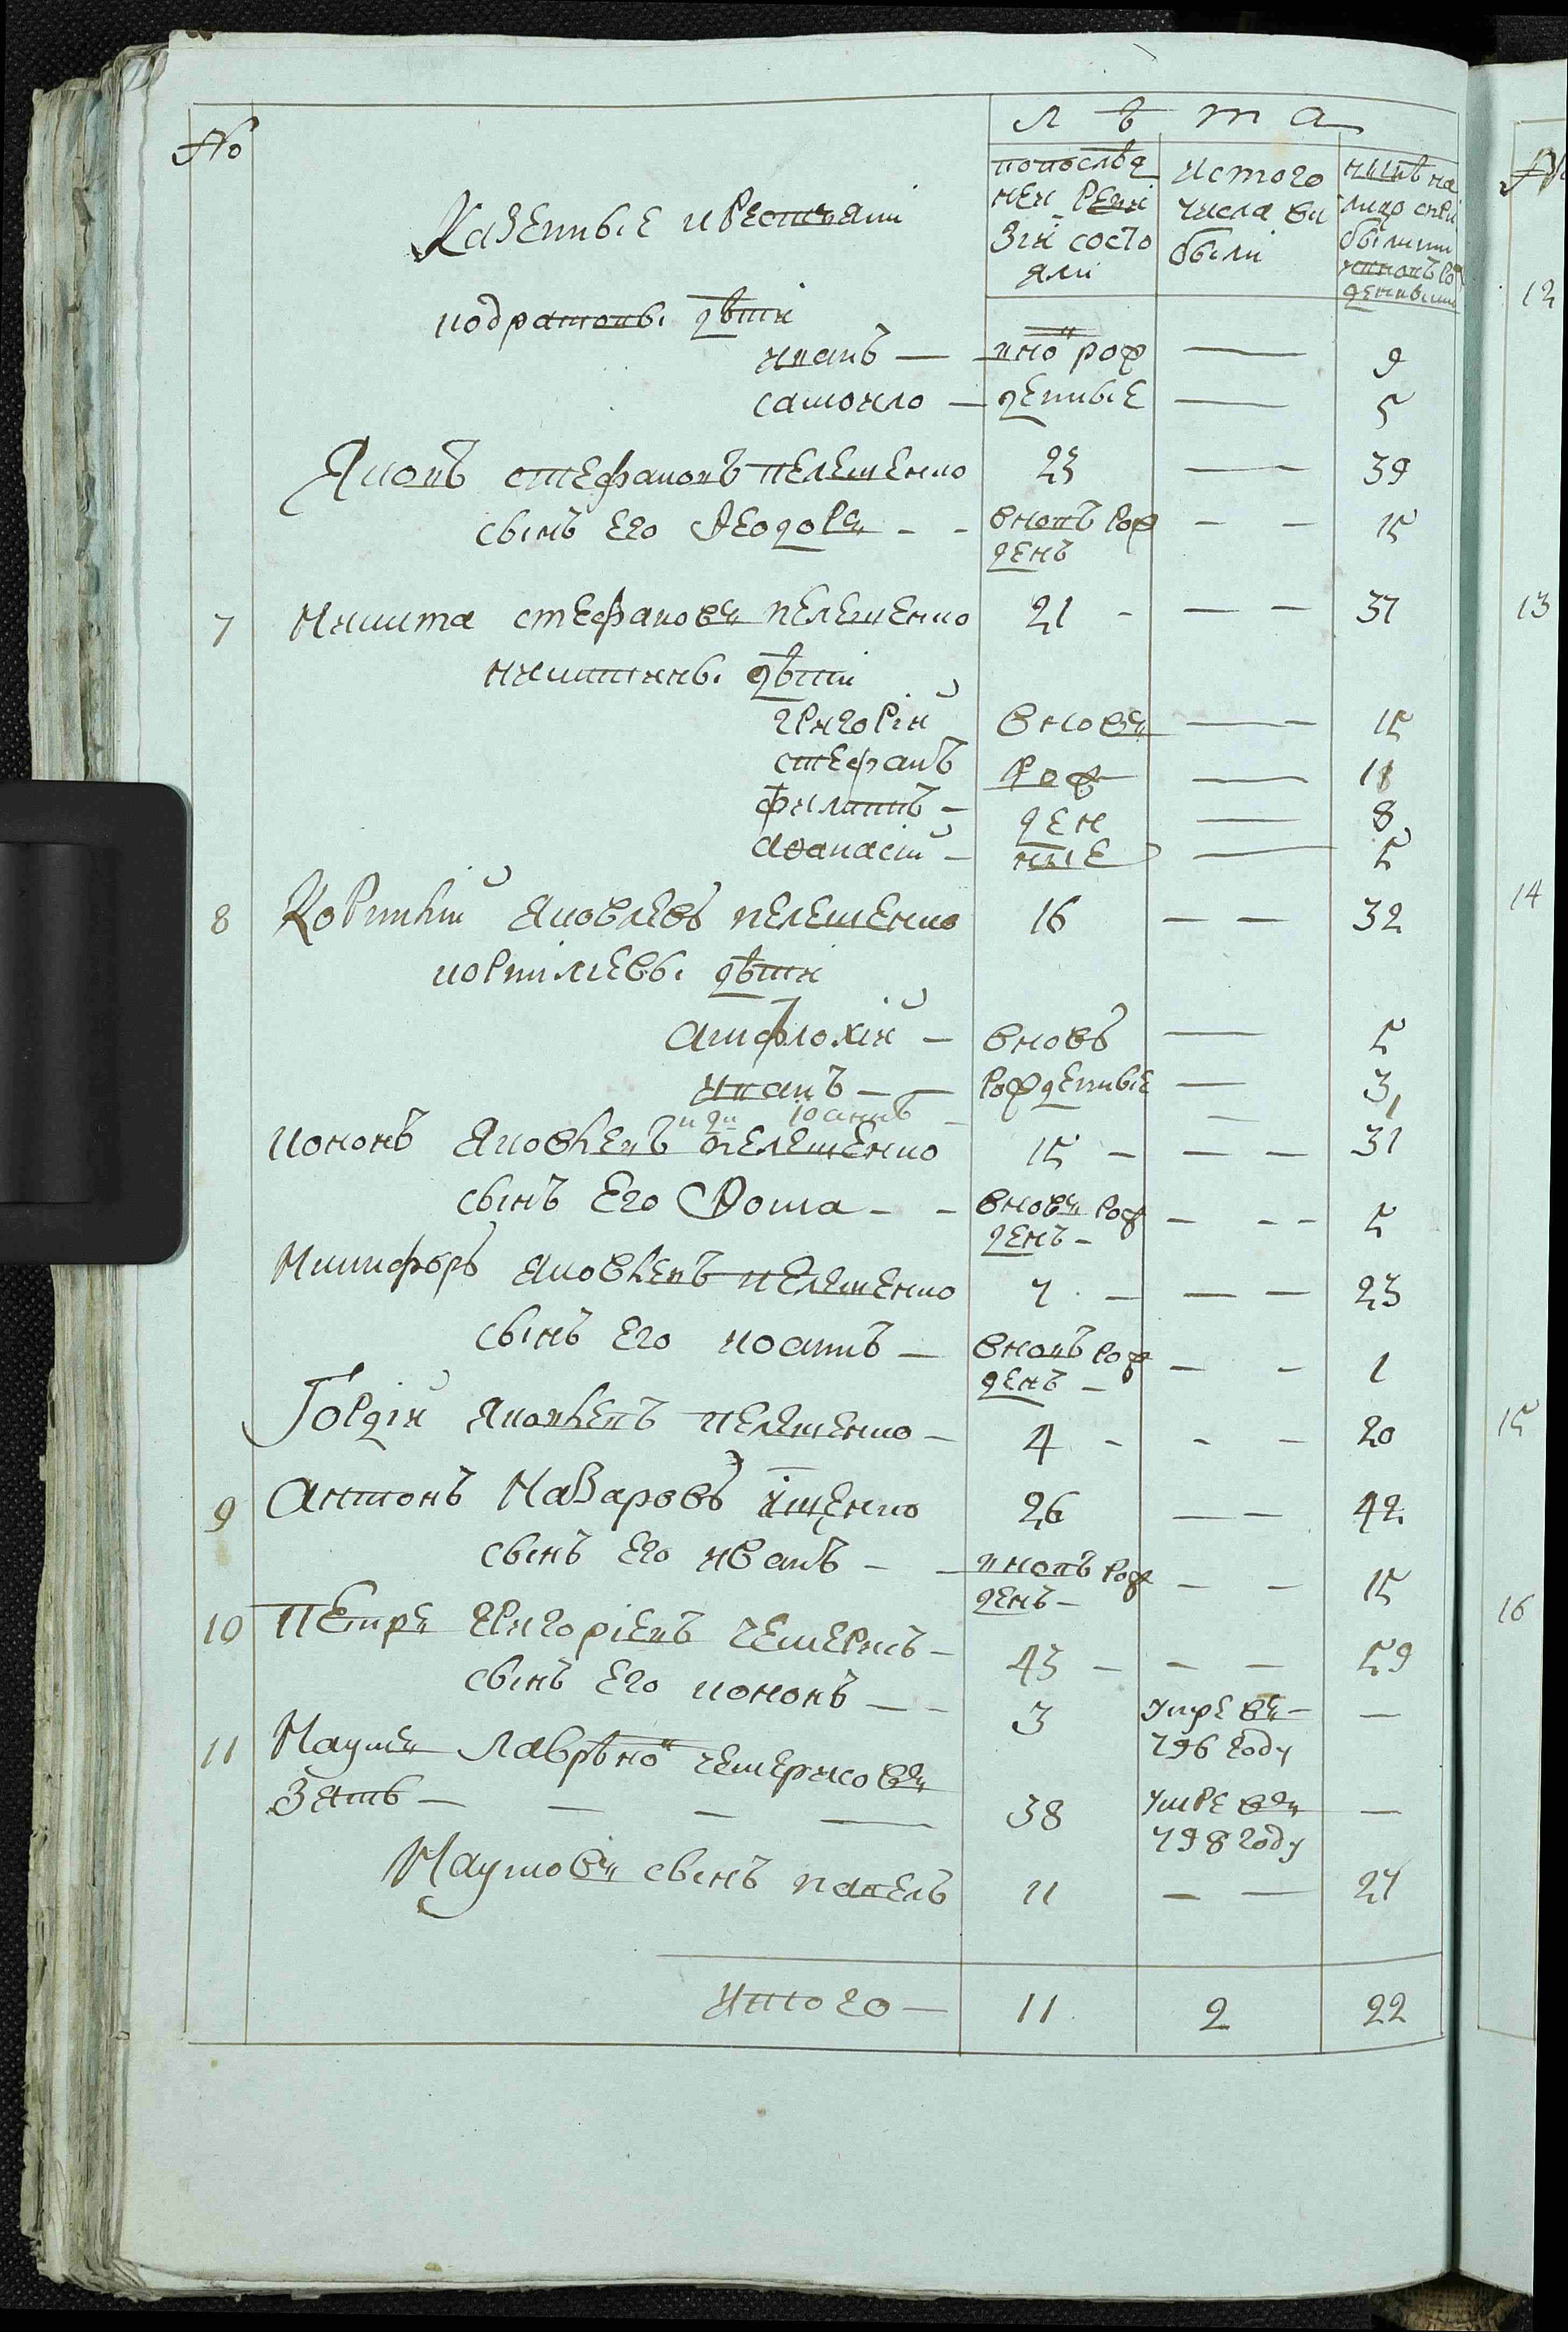 №
Лѣта
Казенные крестьяни
попослѣд
ней реви
зіи состо
яли
Истого
числа вы
были
нынѣ на
лицо спри
былими
иновъ ро
денными
кодратовы дѣти
Иванъ — вно рож — 9
Самойло — денные — 5
Яковъ Стефановъ Пелешенко 23 — 39
сынъ его Феодоръ — вновъ рож — 15
денъ
7 Никита Стефановъ Пелешенко 21 — 37
никитины дѣти
Григорій вновъ — 15
Стефанъ рож — 11
Филипъ — ден — 8
Афанасій — ные — 5
8 Корнилій Яковлевъ Пелешенко 16 — 32
корниліевы дѣти
Амфлохій — вновъ — 5
Иванъ — рожденные — 3
Иоаннъ — 1
Кононъ Яковлевъ Пелешенко 15 — 31
сынъ его Фома — вновъ рож — 5
денъ —
Никифоръ Яковлевъ Пелешенко 7 — 23
сынъ его Иоаннъ — вновъ рож — 1
денъ —
Гордій Яковлевъ Пелешенко — 4 — 20
9 Антонъ Назаровъ Ищенко 26 — 42
сынъ его Иванъ — вновъ рож — 15
денъ —
10 Петръ Григоріевъ Чемерисъ — 43 — 59
сынъ его Кононъ — 3 умре въ — —
796 году
11 Наумъ Лаврѣно Чемерисовъ
зять — 38 умре въ —
798 году
Наумовъ сынъ Павелъ 11 — 27
Итого — 11 2 22
№
12
13
14
15
16